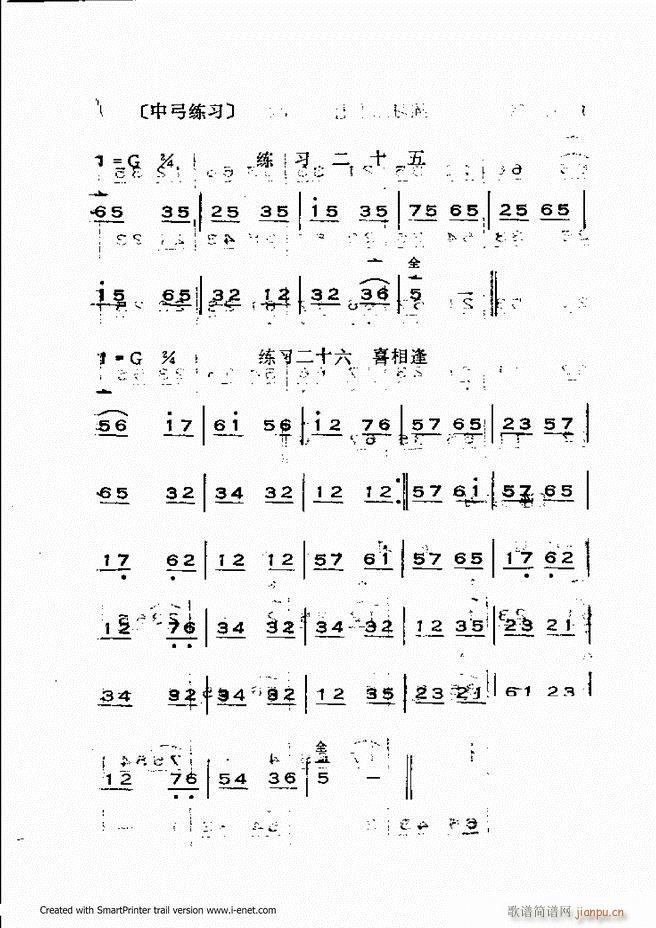 〔中弓练习〕
1=G 2/4 练习二十五
65 35 | 25 35 | i5 35 | 75 65 | 25 65 |
全
i5 65 | 32 12 | 32 36 | 5 — ‖
1=G 2/4 练习二十六 喜相逢
56 i7 | 6i 56 | i2 76 | 57 65 | 23 57 |
65 32 | 34 32 | 12 12 :‖ 57 6i | 57 65 |
17 62 | 12 12 | 57 6i | 57 65 | 17 62 |
12 76 | 34 32 | 34 32 | 12 35 | 23 21 |
34 32 | 34 32 | 12 35 | 23 21 | 61 23 |
全
12 76 | 54 36 | 5 — ‖
Created with SmartPrinter trail version www.i-enet.com
歌谱简谱网 jianpu.cn